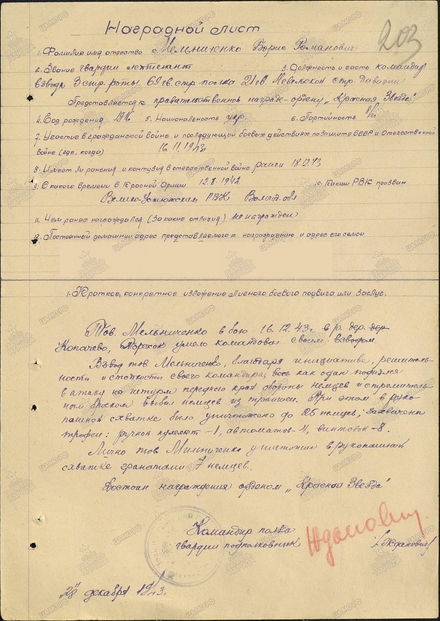 203
Наградной лист
1. Фамилия имя отчество Мельниченко Борис Романович
2. Звание гвардии лейтенант 3. Должность и часть командир
взвода 3 стр. роты 69 гв. стр. полка 21 гв. Невельской стр. дивизии
Представляется к правительственной награде ордену "Красная Звезда"
4. Год рождения 5. Национальность укр. 6. Партийность
7. Участие в гражданской войне и последующих боевых действиях по защите СССР и Отечественной
войне (где, когда) 16.11.1942
8. Имеет ли ранения и контузии в отечественной войне ранен
9. С какого времени в Красной Армии 12.8.1942 10. Каким РВК призван
РВК
11. Чем ранее награжден (за какие отличия) не награжден
12. Постоянный домашний адрес представляемого к награждению и адрес его семьи
1. Краткое, конкретное изложение личного боевого подвига или заслуг.
Тов. Мельниченко в бою 16.12.43г. в р. дер.
умело командовал своим взводом.
Взвод тов. Мельниченко, благодаря инициативе, решитель-
ности и стойкости своего командира весь как один поднялся
в атаку на штурм переднего края обороны немцев и стремитель-
ным броском выбил немцев из траншеи. При этом в руко-
пашной схватке было уничтожено до немцев, захвачены
трофеи: ручной пулемет-1, автоматов-4, винтовок-8.
Лично тов. Мельниченко уничтожил в рукопашной
схватке гранатами 7 немцев.
Достоин награждения орденом "Красная Звезда"
Командир полка
гвардии подполковник
28 декабря 1943г.